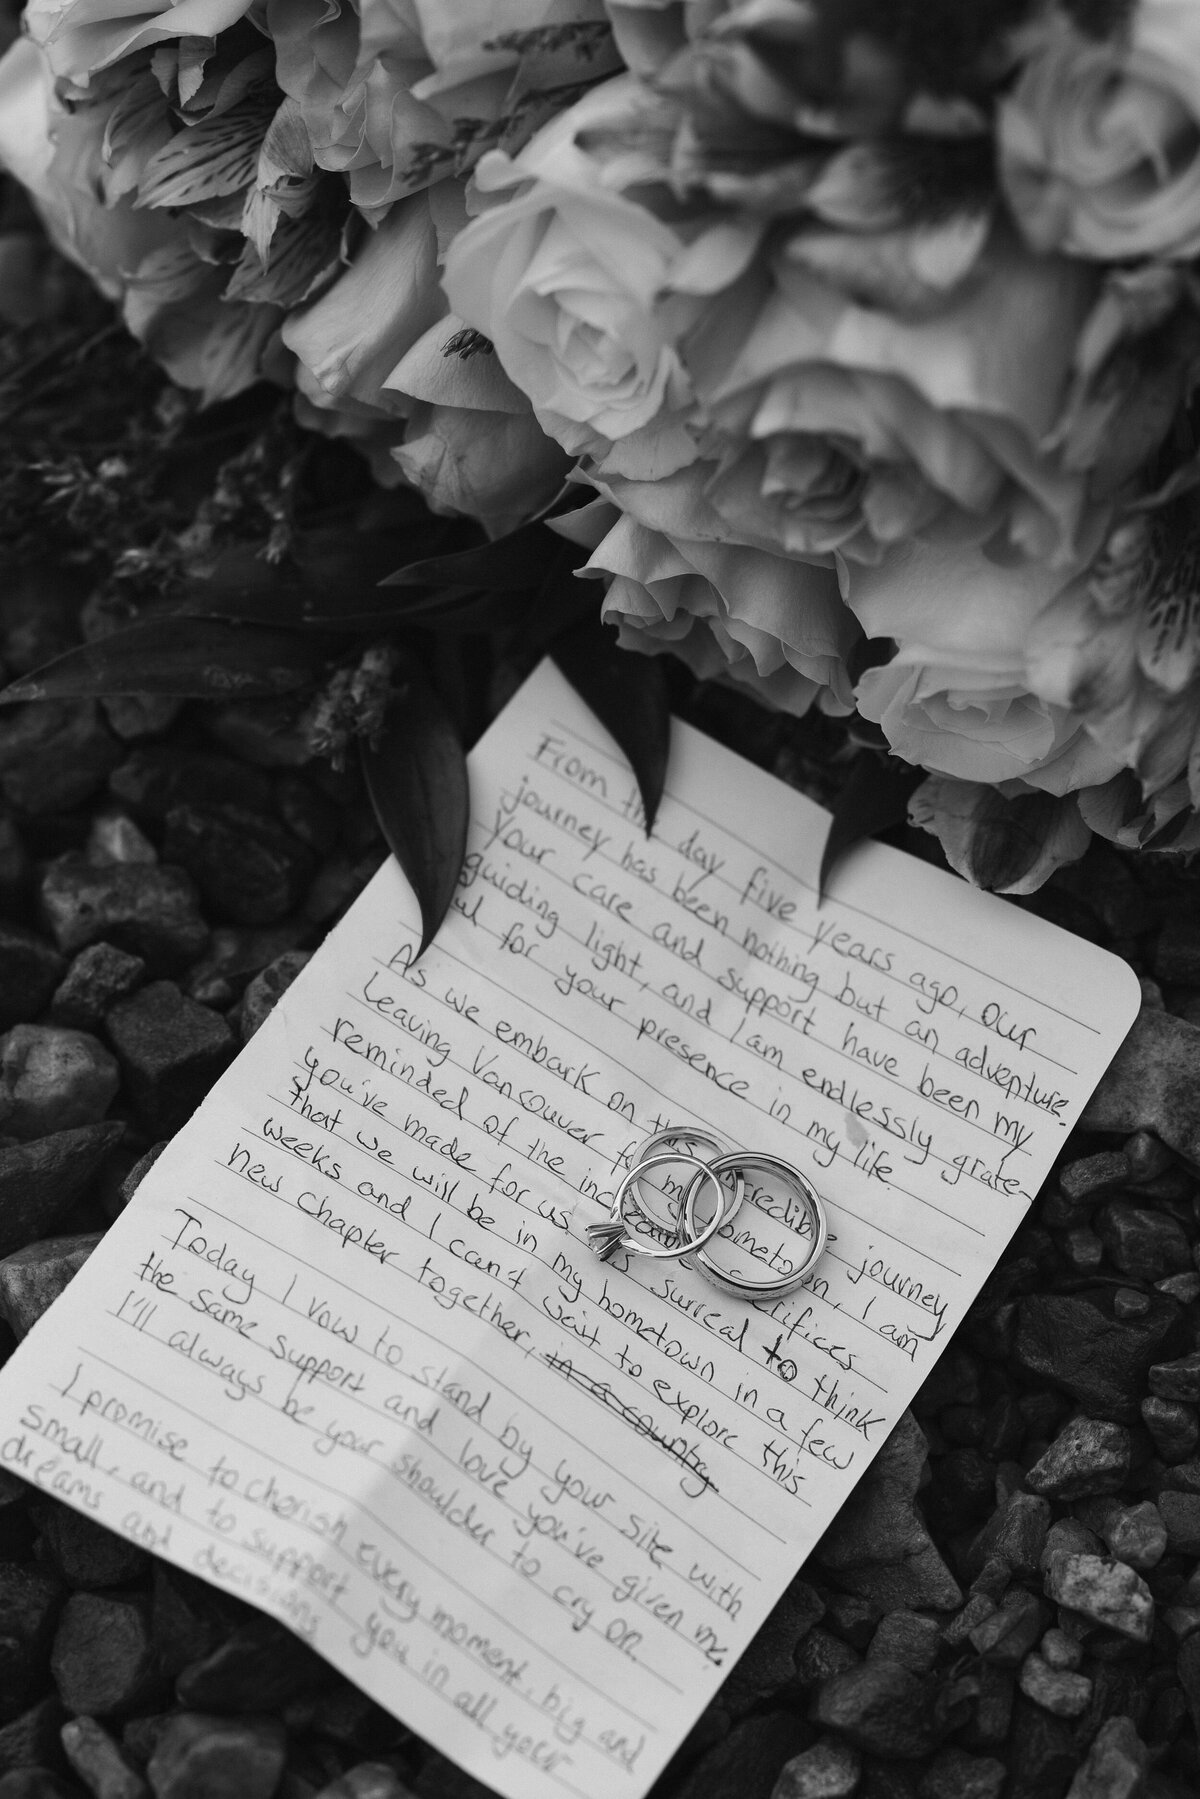 From the day five years ago, our
journey has been nothing but an adventure.
Your care and support have been my
guiding light, and I am endlessly grate-
ful for your presence in my life.
As we embark on this incredible journey
leaving Vancouver my hometown, I am
reminded of the sacrifices
you've made for us. surreal to think
that we will be in my hometown in a few
weeks and I can't wait to explore this
new chapter together, in a country
Today I vow to stand by your site with
the same support and love you've given me.
I'll always be your shoulder to cry on.
I promise to cherish every moment, big and
small, and to support you in all your
dreams and decisions